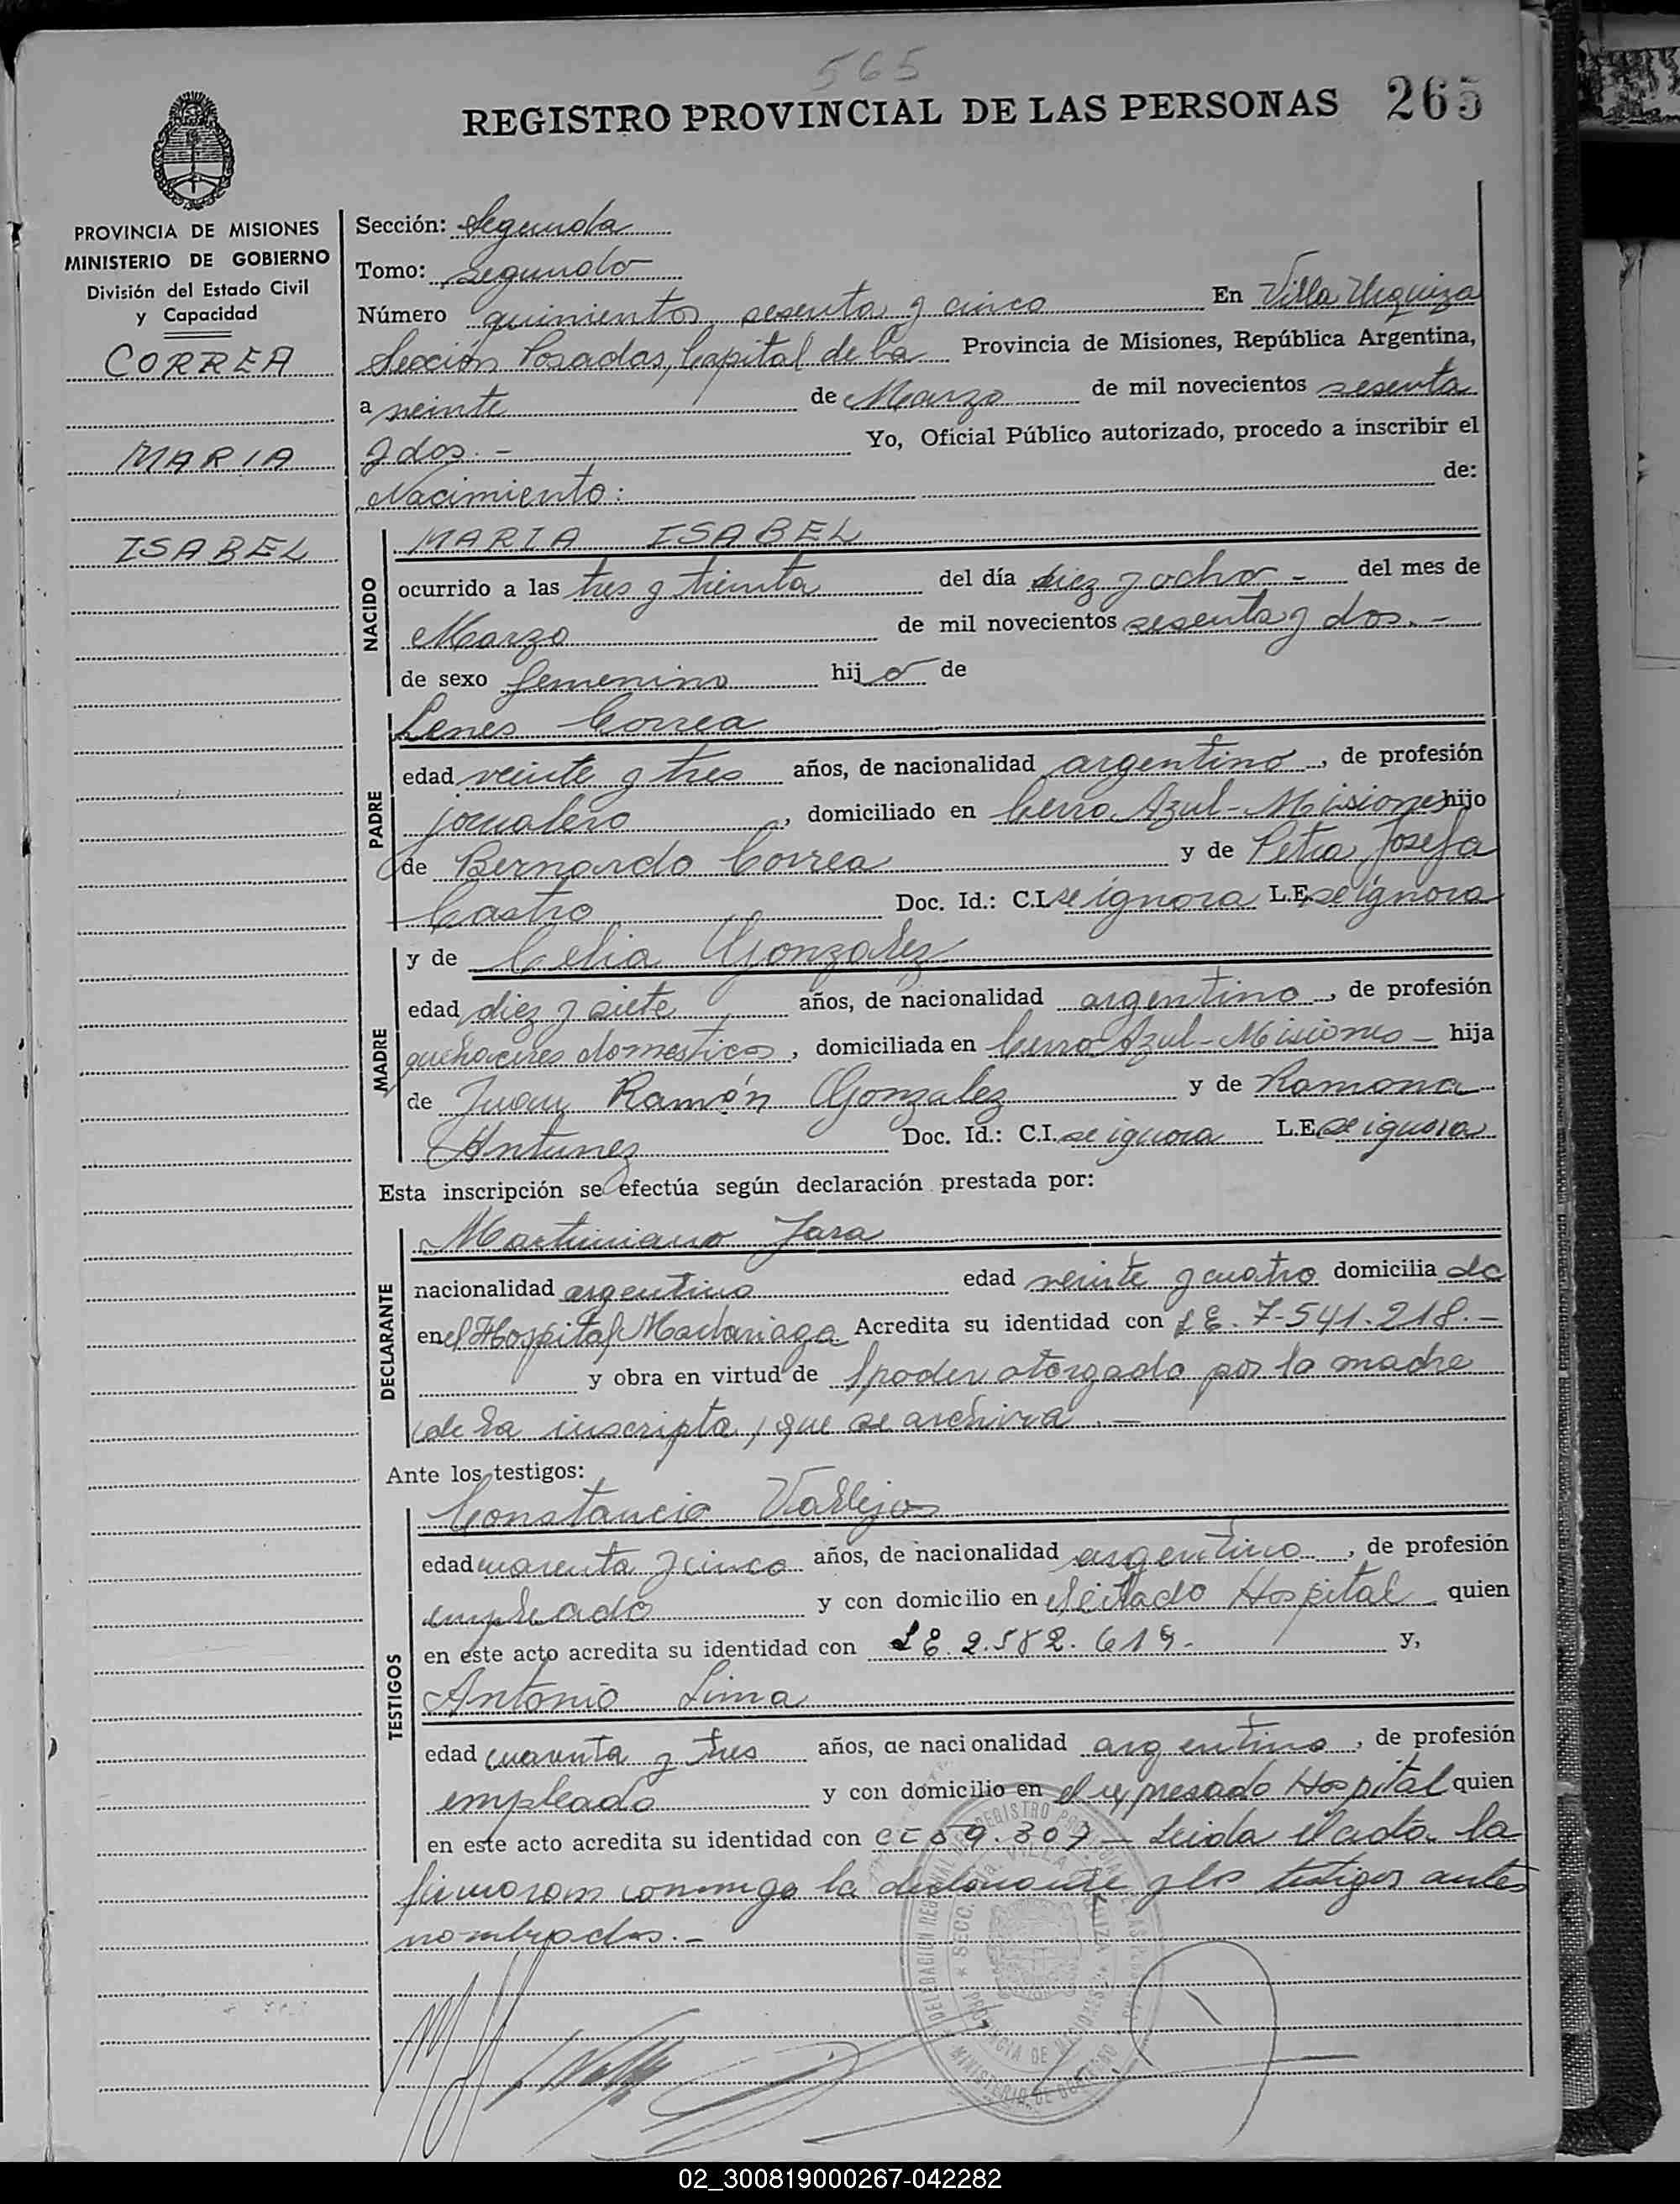 565
REGISTRO PROVINCIAL DE LAS PERSONAS 265
PROVINCIA DE MISIONES
MINISTERIO DE GOBIERNO
División del Estado Civil
y Capacidad
CORREA
MARIA
ISABEL
Sección: Segunda
Tomo: segundo
Número quinientos sesenta y cinco En Villa Urquiza
Sección Posadas, Capital de la Provincia de Misiones, República Argentina,
a veinte de Marzo de mil novecientos sesenta
y dos.- Yo, Oficial Público autorizado, procedo a inscribir el
Nacimiento: de:
NACIDO
MARIA ISABEL
ocurrido a las tres y treinta del día diez y ocho - del mes de
Marzo de mil novecientos sesenta y dos.-
de sexo femenino hij a de
PADRE
Lenes Correa
edad veinte y tres años, de nacionalidad argentino, de profesión
jornalero, domiciliado en Cerro Azul - Misiones hijo
de Bernardo Correa y de Petra Josefa
Castro Doc. Id.: C.I. se ignora L.E. se ignora
MADRE
y de Celia Gonzalez
edad diez y siete años, de nacionalidad argentino, de profesión
quehaceres domesticos, domiciliada en Cerro Azul - Misiones - hija
de Juan Ramón Gonzalez y de Ramona
Antunez Doc. Id.: C.I. se ignora L.E. se ignora
Esta inscripción se efectúa según declaración prestada por:
DECLARANTE
Martiniano Jara
nacionalidad argentino edad veinte y cuatro domicilia do
en el Hospital Madariaga Acredita su identidad con L E. 7-541.218.-
y obra en virtud de poder otorgado por la madre
de la inscripta, que se archiva.-
Ante los testigos:
TESTIGOS
Constancio Vallejos
edad cuarenta y cinco años, de nacionalidad argentino, de profesión
empleado y con domicilio en el citado Hospital quien
en este acto acredita su identidad con L E 2.582.619.- y,
Antonio Lima
edad cuarenta y tres años, de nacionalidad argentino, de profesión
empleado y con domicilio en el expresado Hospital quien
en este acto acredita su identidad con 59.307 - Leida el acta la
firmaron conmigo la declarante y los testigos antes
nombrados.-
02_300819000267-042282